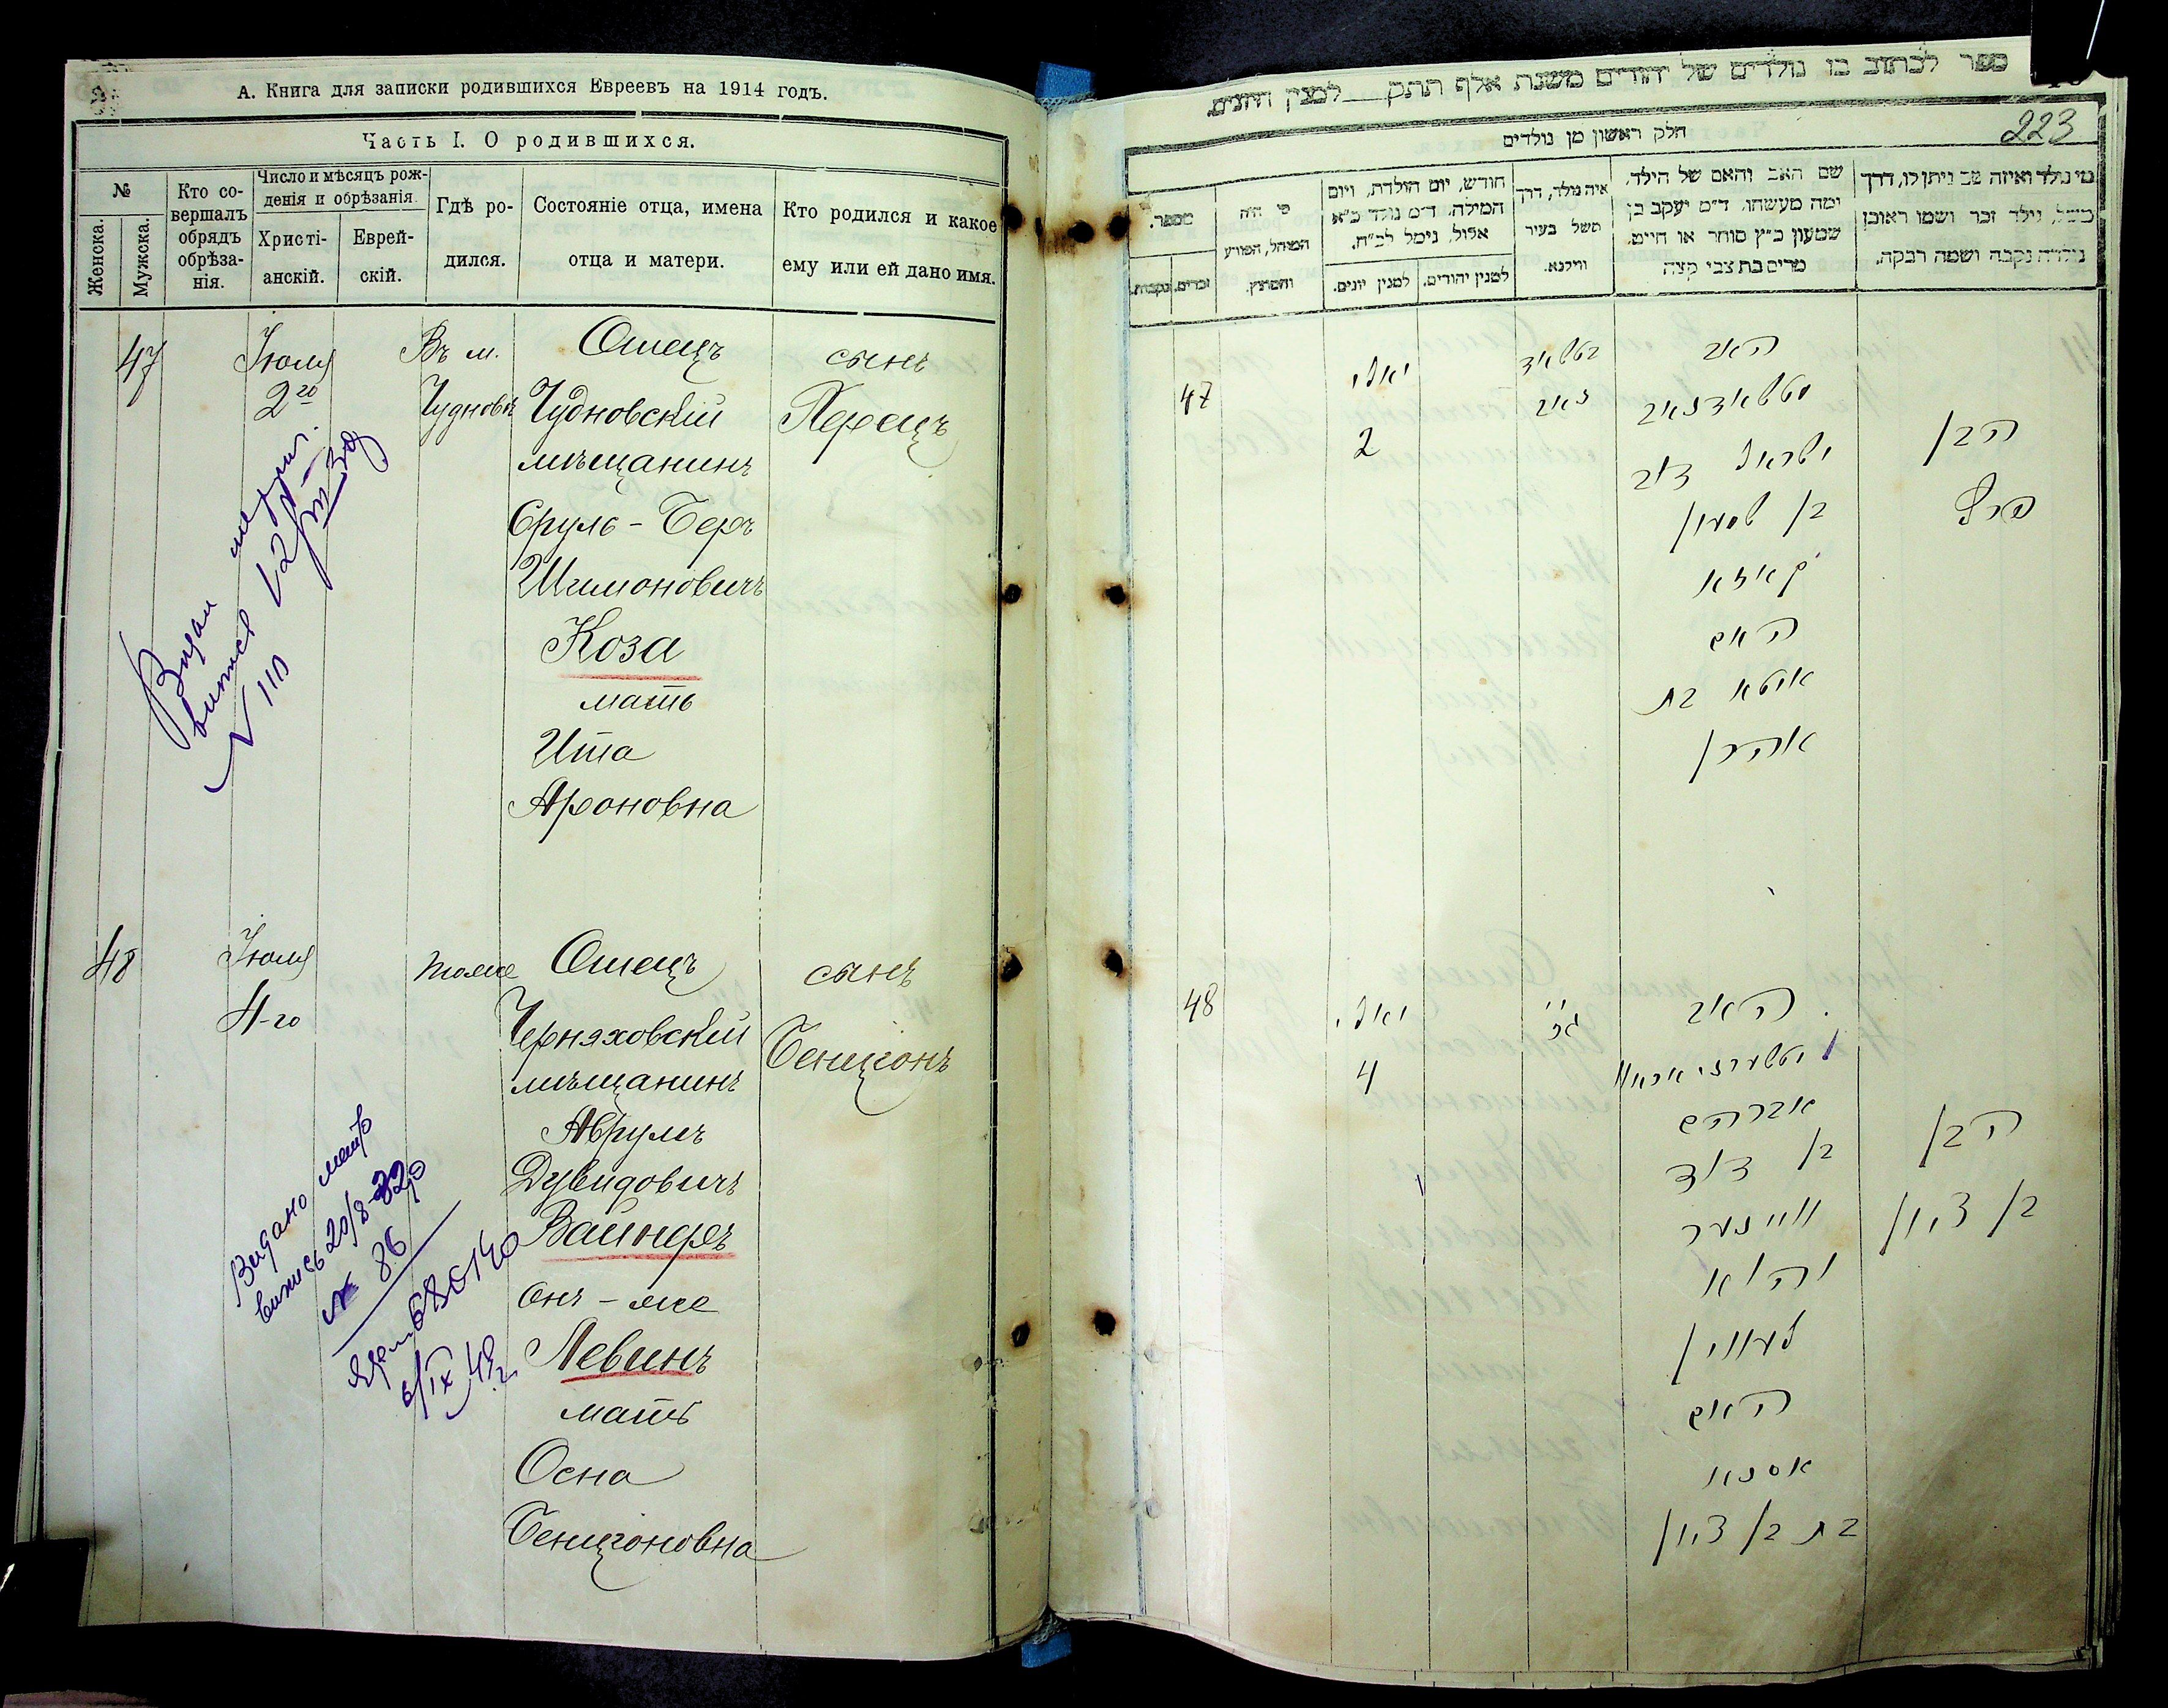 А. Книга для записки родившихся Евреевъ на 1914 годъ.
Часть I. О родившихся.
№
Женска.
Мужска.
Кто совершалъ обрядъ обрѣзанія.
Число и мѣсяцъ рожденія и обрѣзанія.
Христіанскій.
Еврейскій.
Гдѣ родился.
Состояніе отца, имена отца и матери.
Кто родился и какое ему или ей дано имя.
47 Іюля Въ м. Отецъ сынъ
2го Чудновѣ Чудновскій Перецъ
мѣщанинъ
Сруль-Беръ
Шимоновичъ
Коза
мать
Ита
Ароновна
48 Іюля тоже Отецъ сынъ
4-го Черняховскій Бенціонъ
мѣщанинъ
Аврумъ
Дувидовичъ
Вайнеръ
Онъ-же
Левинъ
мать
Осна
Бенціоновна
№ 110
Видано метр
випись 20/8
№ 86
6/IX 49г.
ספר לכתוב בו נולדים של יהודים משנת אלף תתק למנין היונים.
223
חלק ראשון מן נולדים
מספר.
זכרים.
נקבות.
מי היה המוהל, הפורע והמוצץ.
חודש, יום הולדת, ויום המילה. ד״מ נולד כ״א אלול, נימל לכ״ח.
למנין יונים.
למנין יהודים.
איה נולד, דרך משל בעיר ווילנא.
שם האב והאם של הילד, ומה מעשהו. ד״מ יעקב בן שמעון כ״ץ סוחר או חייט. מרים בת צבי קצה
מי נולד ואיזה שם ניתן לו, דרך משל, נולד זכר ושמו ראובן נולדה נקבה ושמה רבקה.
47 יאלי האב
2 הבן
ישראל דוב
בן שמעון פרץ
קאזא
האם
איטא בת
אהרן
48 יאלי האב
4
אברהם
בן דוד הבן
וויינער בן ציון
והוא
לעווין
האם
אסנא
בת בן ציון